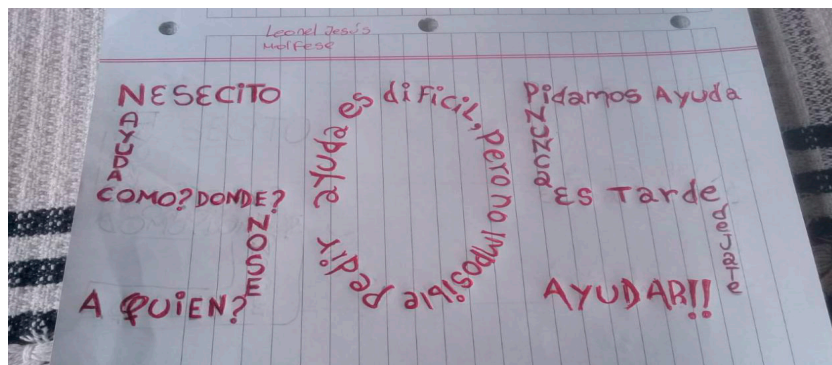 Leonel Jesús
Molfese
NESECITO
AYUDA
COMO? DONDE?
NOSE
A QUIEN?
Pedir ayuda es dificil, pero no imposible
Pidamos Ayuda
NUNCA
Es Tarde
dejate
AYUDAR!!